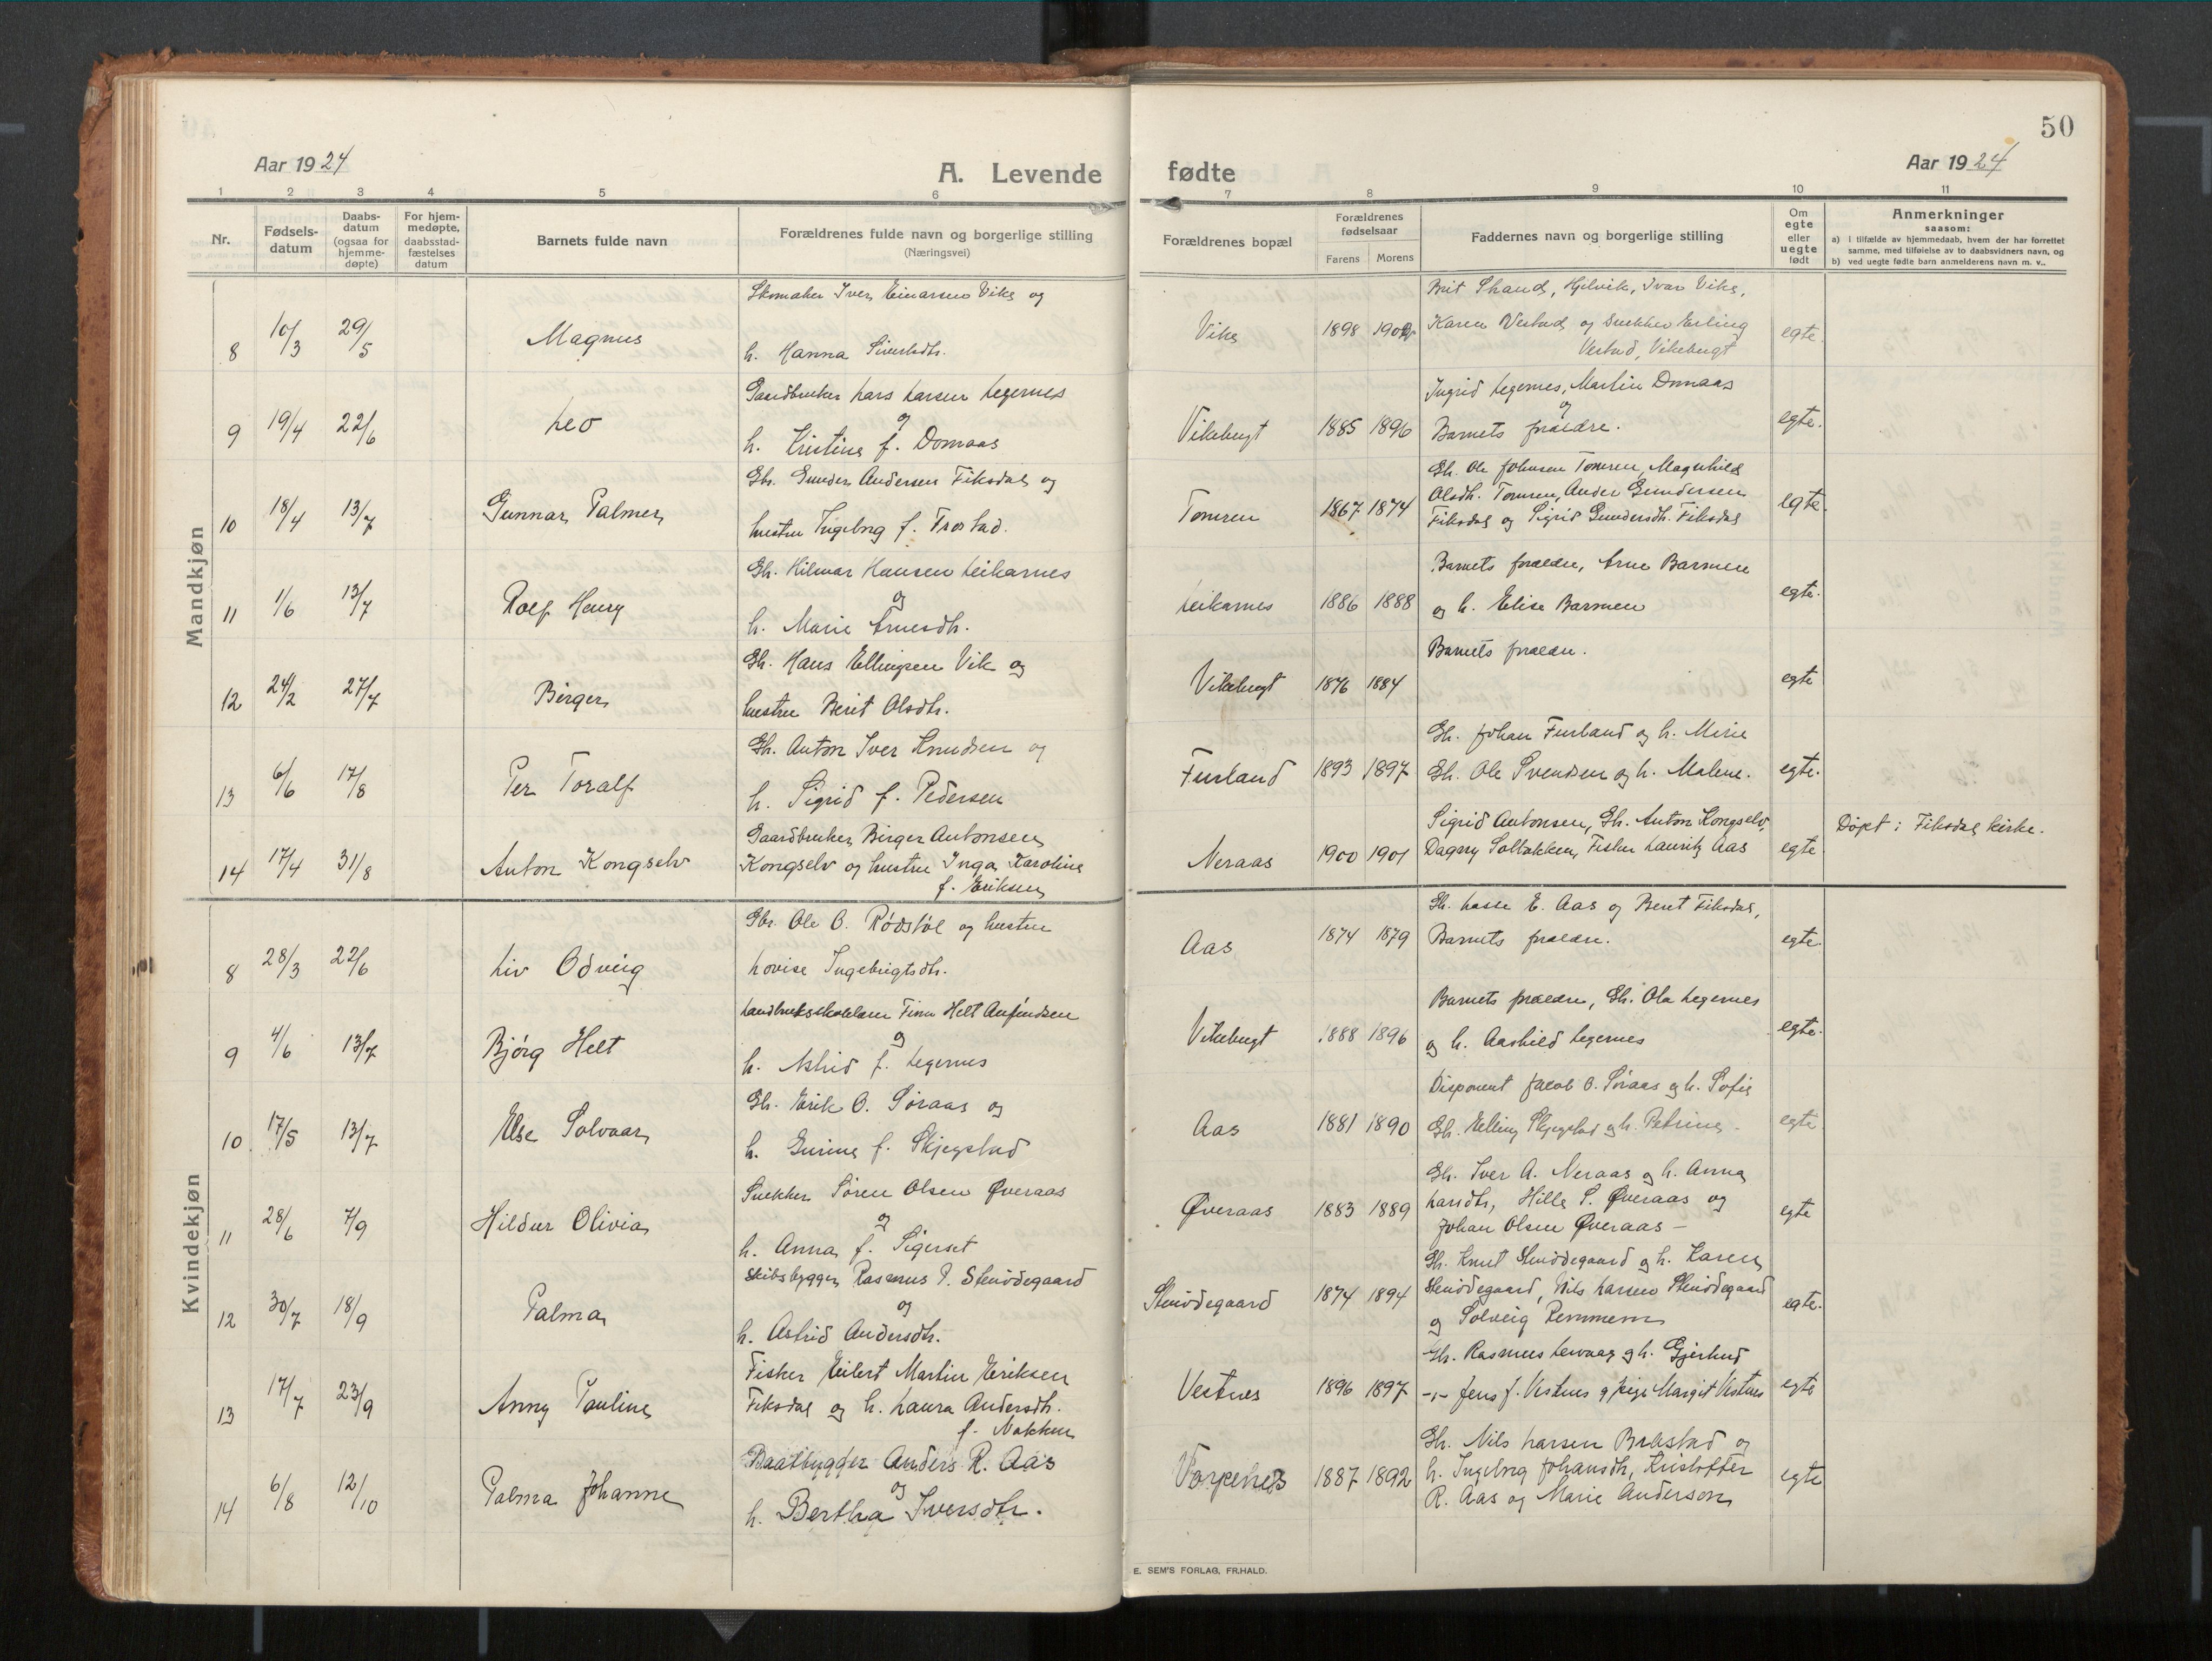 50
Aar 1924
A. Levende
fødte
Aar 1924
1 2 3 4 5 6 7 8 9 10 11
Nr.
Fødsels-
datum
Daabs-
datum
(ogsaa for
hjemme-
døpte)
For hjem-
medøpte,
daabsstad-
fæstelses
datum
Barnets fulde navn
Forældrenes fulde navn og borgerlige stilling
(Næringsvei)
Forældrenes bopæl
Forældrenes
fødselsaar
Farens Morens
Faddernes navn og borgerlige stilling
Om
egte
eller
uegte
født
Anmerkninger
saasom:
a) i tilfælde av hjemmedaab, hvem der har forrettet
samme, med tilføielse av to daabsvidners navn, og
b) ved uegte fødte barn anmelderens navn m. v..
Mandkjøn
8 10/3 29/5 Magnus
Skomaker Iver Einarsen Vike og
h. Hanna Sivertsdtr.
Vike 1898 1902
Brit Skaud, Hjelvik, Ivar Vike,
Karen Vestad og Snekker Erling
Vestad, Vikebugt
egte.
9 19/4 22/6 Leo
Gaardbruker Lars Larsen Legernes
og
h. Kristine f. Domaas
Vikebugt 1885 1896
Ingrid Legernes, Martin Domaas
og
Barnets forældre.
egte.
10 18/4 13/7 Gunnar Palmer
Gbr. Gunder Andersen Fiksdal og
hustru Ingebrg f. Trostad.
Tomren 1867 1874
Gb. Ole Johnsen Tomren, Magnhild
Olsdh. Tomren, Ander Gundersen
Fiksdal og Sigrid Gundersdh. Fiksdal
egte.
11 1/6 13/7 Rolf Henry
Gb. Hilmar Hansen Leikarnes
og
h. Marie Arnesdh.
Leikarnes 1886 1888
Barnets forældre, Arne Barmen
og h. Elise Barmen
egte.
12 24/2 27/7 Birger
Gb. Hans Ellingsen Vik og
hustru Berit Olsdtr.
Vikebugt 1876 1884
Barnets forældre.
egte
13 6/6 17/8 Per Toralf
Gb. Anton Iver Knudsen og
h. Sigrid f. Pedersen
Furland 1893 1897
Gb. Johan Furland og h. Mirie
Gb. Ole Svendsen og h. Malene.
egte.
14 17/4 31/8 Anton Kongselv
Gaardbruker Birger Antonsen
Kongselv og hustru Inga Karoline
f. Eriksen
Neraas 1900 1901
Sigrid Antonsen, Gb. Anton Kongselv,
Dagny Solbakken, Fisker Lauritz Aas
egte
Døpt i Fiksdal kirke.
Kvindekjøn
8 28/3 22/6 Liv Odveig
Gbr. Ole O. Rødstøl og hustru
Lovise Ingebrigtsdtr.
Aas 1874 1879
Gb. Lasse E. Aas og Beret Fiksdal,
Barnets forældre.
egte.
9 4/6 13/7 Bjørg Helt
Landbrukskolelærer Finn Helt Anfindsen
og
h. Astrid f. Legernes
Vikebugt 1888 1896
Barnets forældre, Gb. Ola Legernes
og h. Aashild Legernes
egte.
10 17/5 13/7 Else Solvaar
Gb. Erik O. Søraas og
h. Gurine f. Skjegstad
Aas 1881 1890
Disponent Jacob O. Søraas og h. Sofie
Gb. Elling Skjegstad og h. Petrine.
egte
11 28/6 7/9 Hildur Olivia
Snekker Søren Olsen Øveraas
og
h. Anna f. Sigerset
Øveraas 1883 1889
Gb. Iver A. Neraas og h. Anna
Larsdtr, Hille S. Øveraas og
Johan Olsen Øveraas –
egte
12 30/7 18/9 Palma
Skibsbygger Rasmus P. Stenødegaard
og
h. Astrid Andersdh.
Stenødegaard 1874 1894
Gb. Knut Stenødegaard og h. Karen
Stenødegaard, Nils Larsen Stenødegaard
og Solveig Remmem
egte.
13 17/7 23/9 Anny Pauline
Fisker Eilert Martin Eriksen
Fiksdal og h. Laura Andersdh.
f. Nakken
Vestnes 1896 1897
Gb. Rasmus Levaag og h. Gjertrud
–"– Jens J. Vestnes og pige Margit Vestnes
egte
14 6/8 12/10 Palma Johanne
Baatbygger Anders R. Aas
og
h. Bertha Iversdtr.
Vorpenes 1887 1892
Gb. Nils Larsen Brastad og
h. Ingebrg Johansdh, Kristoffer
R. Aas og Marie Anderson
egte
E. SEM'S FORLAG, FR.HALD.